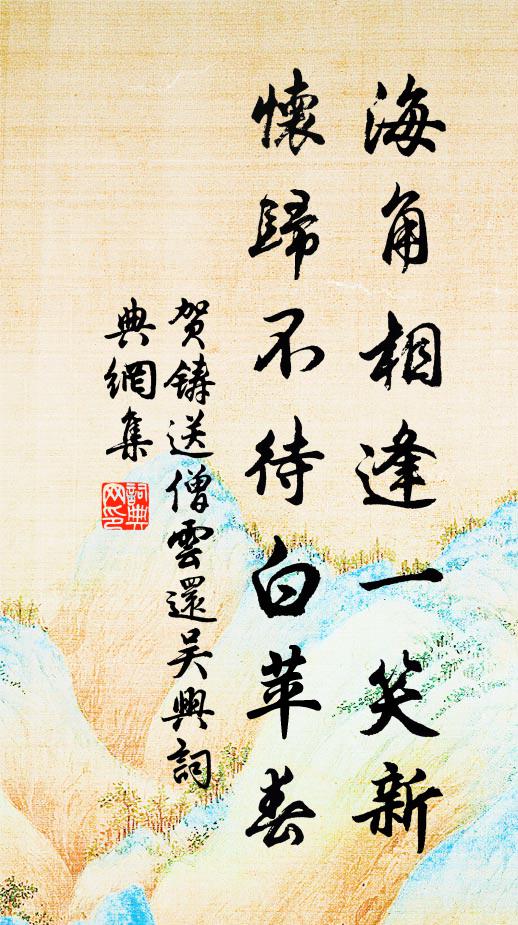 海角相逢一笑新
懷歸不待白苹春
贺鑄送僧雲還吴興詞
典網集
詞典
网印